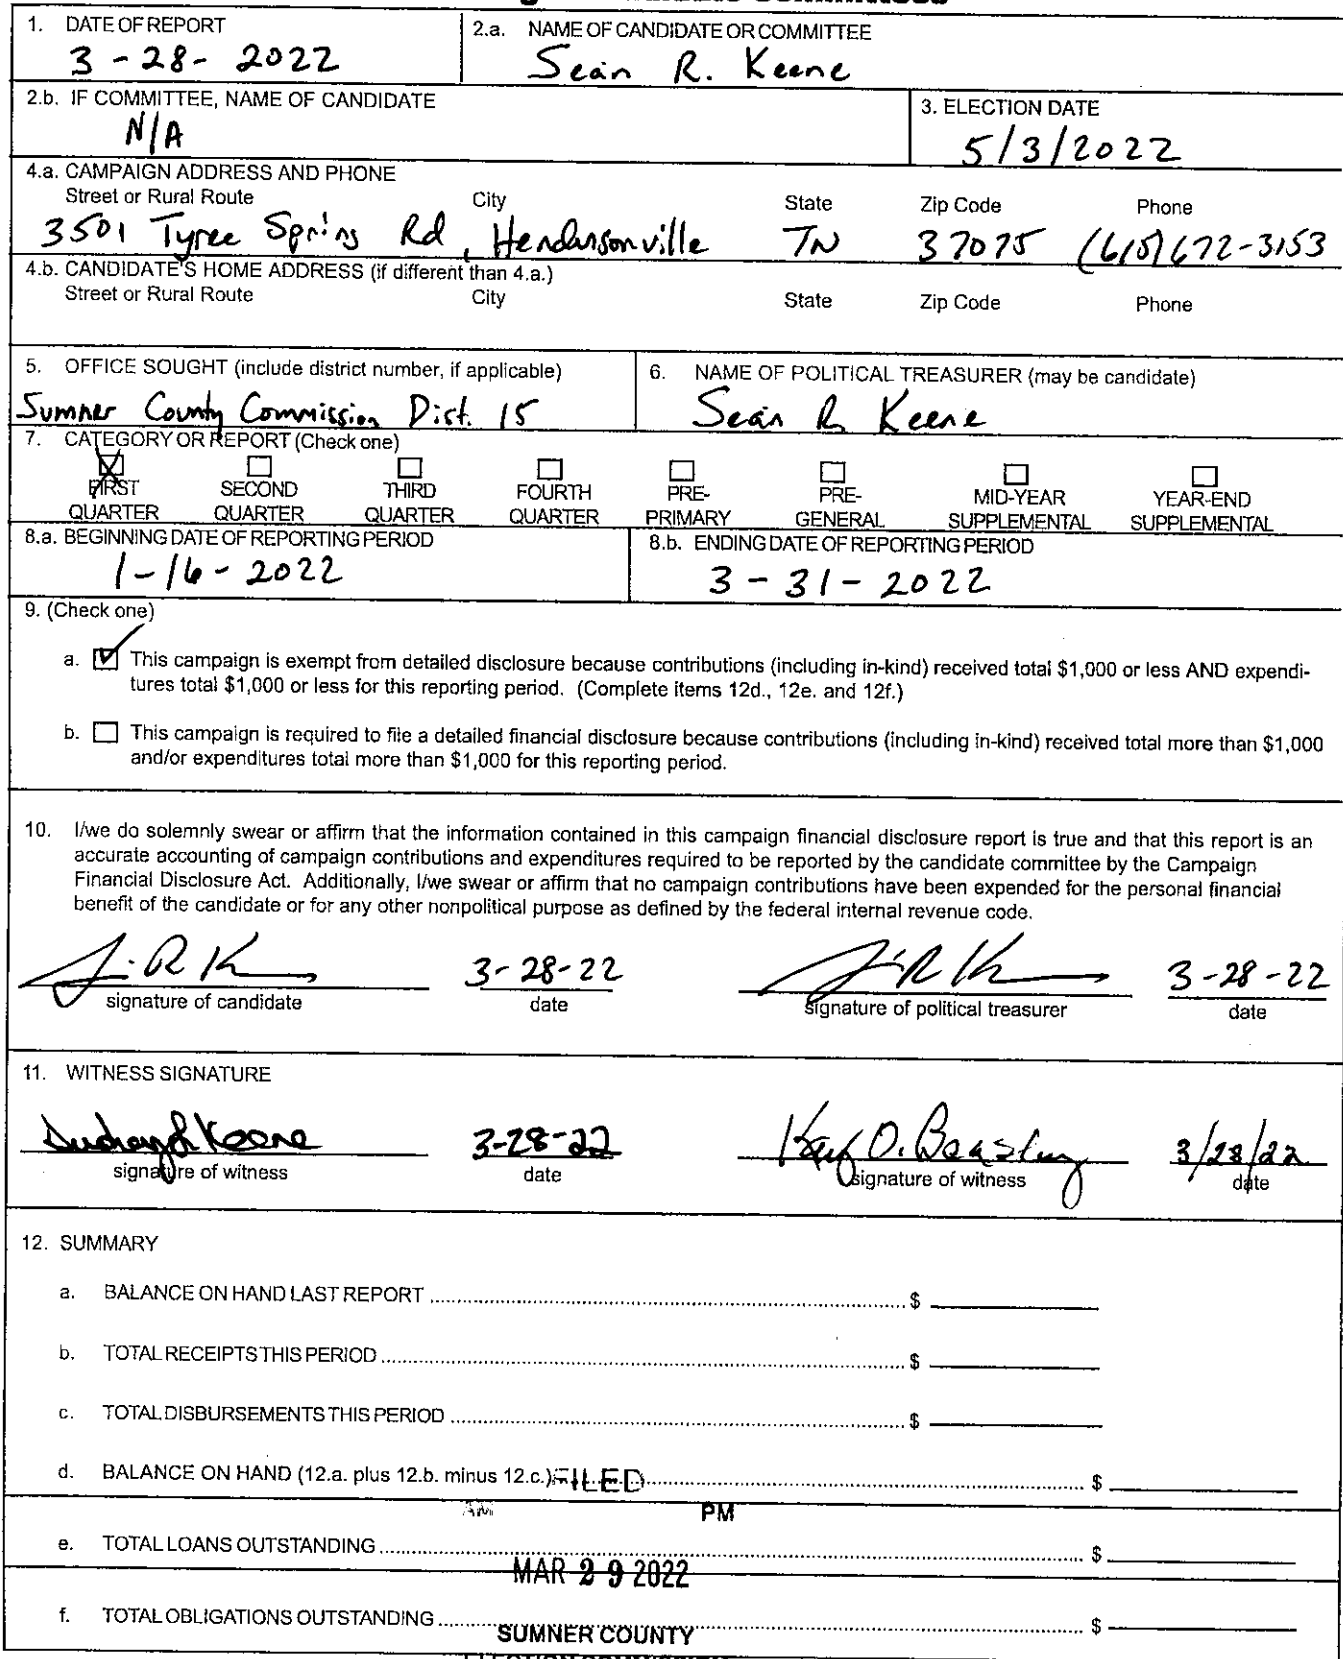 1. DATE OF REPORT
3-28-2022
2.a. NAME OF CANDIDATE OR COMMITTEE
Sean R. Keene
2.b. IF COMMITTEE, NAME OF CANDIDATE
N/A
3. ELECTION DATE
5/3/2022
4.a. CAMPAIGN ADDRESS AND PHONE
Street or Rural Route City State Zip Code Phone
3501 Tyree Spring Rd, Hendersonville TN 37075 (615) 672-3153
4.b. CANDIDATE'S HOME ADDRESS (if different than 4.a.)
Street or Rural Route City State Zip Code Phone
5. OFFICE SOUGHT (include district number, if applicable)
Sumner County Commission Dist. 15
6. NAME OF POLITICAL TREASURER (may be candidate)
Sean R Keene
7. CATEGORY OR REPORT (Check one)
FIRST QUARTER
SECOND QUARTER
THIRD QUARTER
FOURTH QUARTER
PRE-PRIMARY
PRE-GENERAL
MID-YEAR SUPPLEMENTAL
YEAR-END SUPPLEMENTAL
8.a. BEGINNING DATE OF REPORTING PERIOD
1-16-2022
8.b. ENDING DATE OF REPORTING PERIOD
3-31-2022
9. (Check one)
a. This campaign is exempt from detailed disclosure because contributions (including in-kind) received total $1,000 or less AND expendi-
tures total $1,000 or less for this reporting period. (Complete items 12d., 12e. and 12f.)
b. This campaign is required to file a detailed financial disclosure because contributions (including in-kind) received total more than $1,000
and/or expenditures total more than $1,000 for this reporting period.
10. I/we do solemnly swear or affirm that the information contained in this campaign financial disclosure report is true and that this report is an
accurate accounting of campaign contributions and expenditures required to be reported by the candidate committee by the Campaign
Financial Disclosure Act. Additionally, I/we swear or affirm that no campaign contributions have been expended for the personal financial
benefit of the candidate or for any other nonpolitical purpose as defined by the federal internal revenue code.
3-28-22 3-28-22
signature of candidate date signature of political treasurer date
11. WITNESS SIGNATURE
Keene 3-28-22 O. Beasley 3/28/22
signature of witness date signature of witness date
12. SUMMARY
a. BALANCE ON HAND LAST REPORT $
b. TOTAL RECEIPTS THIS PERIOD $
c. TOTAL DISBURSEMENTS THIS PERIOD $
d. BALANCE ON HAND (12.a. plus 12.b. minus 12.c.) $
FILED
AM PM
e. TOTAL LOANS OUTSTANDING $
MAR 29 2022
f. TOTAL OBLIGATIONS OUTSTANDING $
SUMNER COUNTY